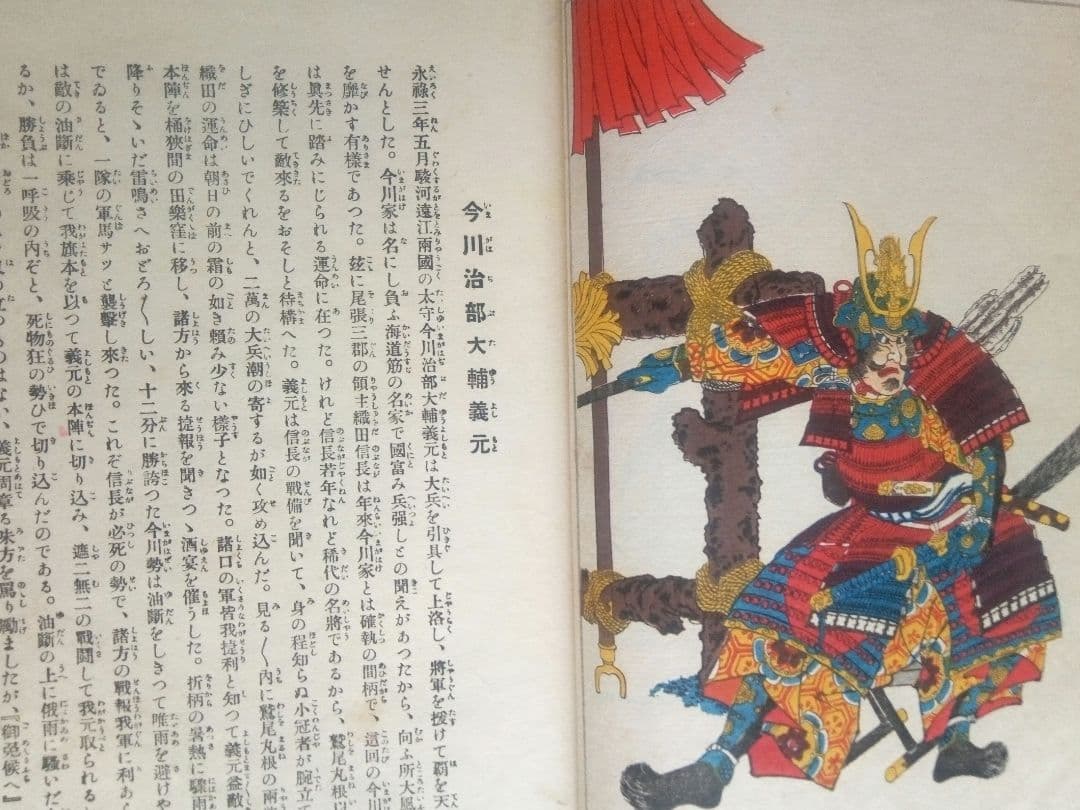 今川治部大輔義元
永祿三年五月駿河遠江兩國の太守今川治部大輔義元は大兵を引具して上洛し、將軍を援けて覇を天
せんとした。今川家は名にし負ふ海道筋の名家で國富み兵强しとの聞えがあつたから、向ふ所大風
を靡かす有樣であつた。玆に尾張三郡の領主織田信長は年來今川家とは確執の間柄で、這回の今川
は眞先に踏みにじられる運命に在つた。けれど信長若年なれど稀代の名將であるから、鷲尾丸根
を修築して敵來るをおそしと待構へた。義元は信長の戰備を聞いて、身の程知らぬ小冠者が腕立
しぎにひしいでくれんと、二萬の大兵潮の寄するが如く攻め込んだ。見る〳〵內に鷲尾丸根の兩
織田の運命は朝日の前の霜の如き賴み少ない樣子となつた。諸口の軍皆我捷利と知つて義元益敵
本陣を桶狹間の田樂窪に移し、諸方から來る捷報を聞きつゝ酒宴を催うした。折柄の暑熱に驟雨
降りそゝいだ雷鳴さへおどろ〳〵しい、十二分に勝誇つた今川勢は油斷をしきつて唯雨を避けや
でゐると、一隊の軍馬サッと襲擊し來つた。これぞ信長が必死の勢で、諸方の戰報我軍に利あ
は敵の油斷に乘じて我旗本を以つて義元の本陣に切り込み、遮二無二の戰鬪して我元取られる
るか、勝負は一呼吸の內ぞと、死物狂の勢ひで切り込んだのである。油斷の上に俄雨に騷いだ
るものはない、義元周章る味方を罵り勵ましたが、『御免候へ』